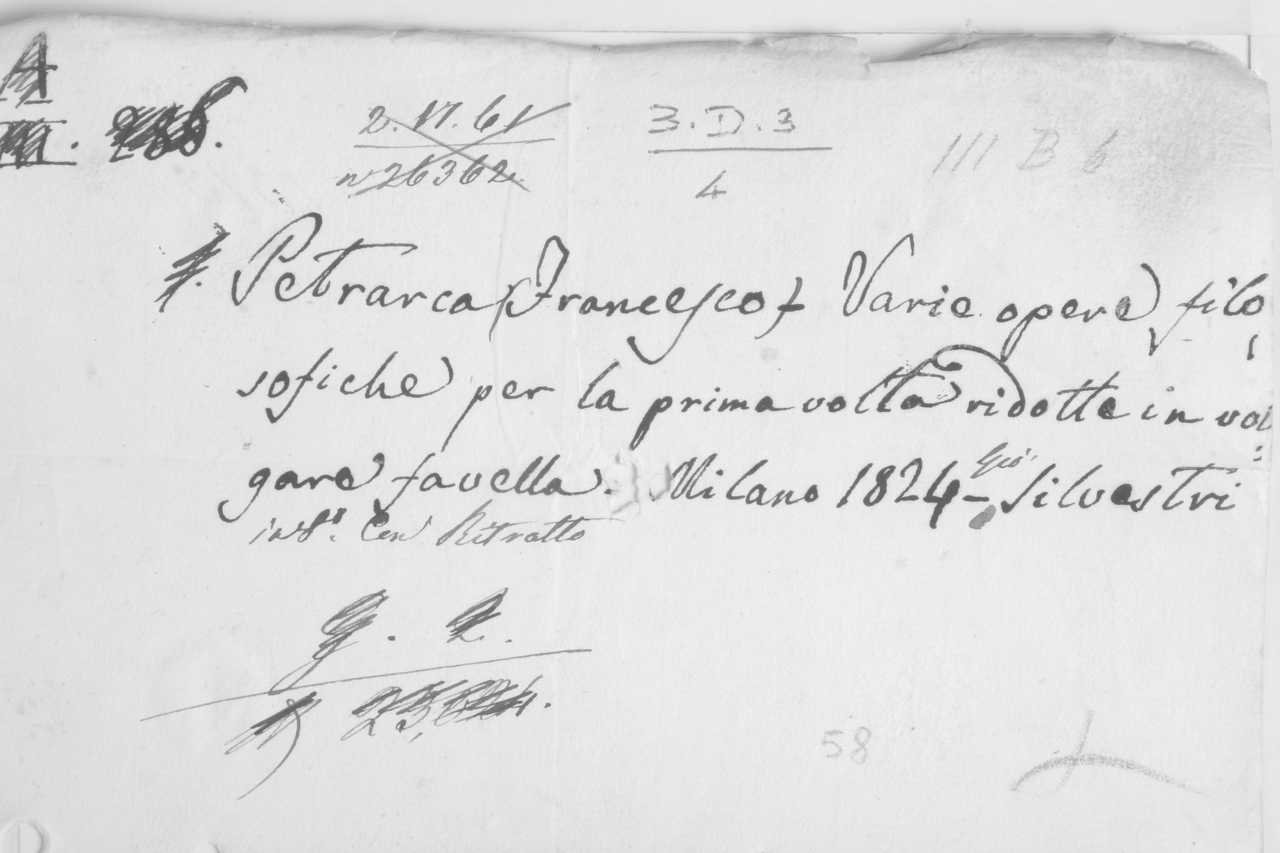 2. 17. 61 3.D.3
n 26362 4 III B 6
Petrarca (Francesco) Varie opere filo
sofiche per la prima volta ridotte in vol
gare favella. Milano 1824 - Gio. Silvestri
in 8°. Con Ritratto
G. 2.
58